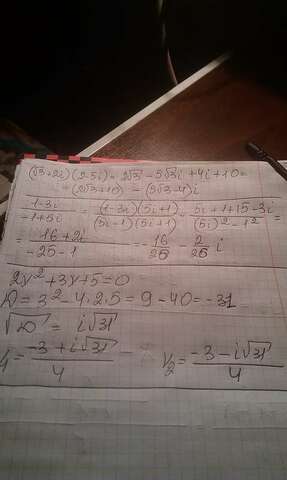 (√3+2i)(2-5i) = 2√3 - 5√3i + 4i + 10 =
= (2√3+10) - (5√3-4)i
(1-3i)/(-1+5i) = ((1-3i)(5i+1))/((5i-1)(5i+1)) = (5i+1+15-3i)/((5i)²-1²) =
= (16+2i)/(-25-1) = -16/26 - 2/26 i
2y²+3y+5=0
D = 3²-4·2·5 = 9-40 = -31
√D = i√31
y₁ = (-3+i√31)/4 y₂ = (-3-i√31)/4